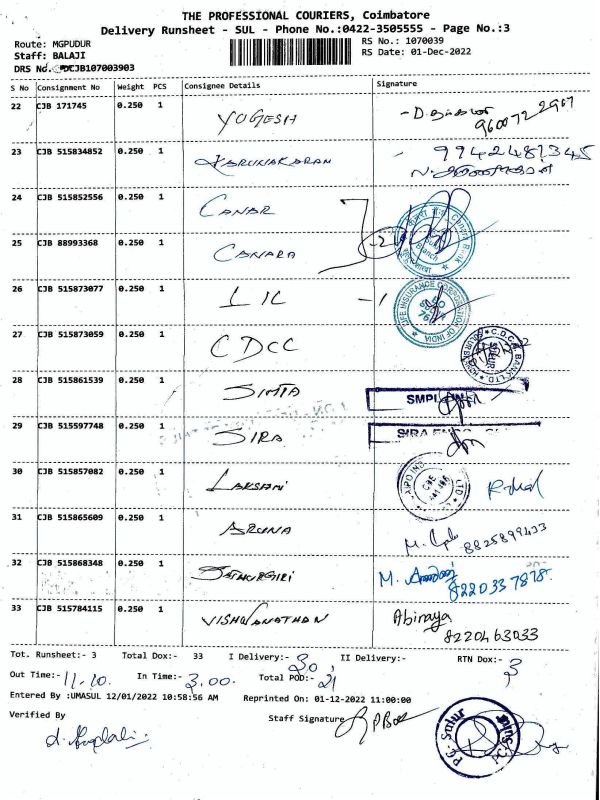 THE PROFESSIONAL COURIERS, Coimbatore
Delivery Runsheet - SUL - Phone No.:0422-3505555 - Page No.:3
Route: MGPUDUR
RS No.: 1070039
Staff: BALAJI
RS Date: 01-Dec-2022
DRS No. DCJB107003903
S No Consignment No Weight PCS Consignee Details Signature
22 CJB 171745 0.250 1 YOGESH
23 CJB 515834852 0.250 1 KARUNAKARAN
24 CJB 515852556 0.250 1 CANAR
25 CJB 88993368 0.250 1 CANARA
26 CJB 515873077 0.250 1 LIC - 1
27 CJB 515873059 0.250 1 CDCC
28 CJB 515861539 0.250 1 SIMTA SMPL
29 CJB 515597748 0.250 1 SIRA SIRA
30 CJB 515857082 0.250 1 LAKSHMI
31 CJB 515865609 0.250 1 ARUNA M. 8825899433
32 CJB 515868348 0.250 1 SATHURGIRI M. 8220337878
33 CJB 515784115 0.250 1 VISHWANATHAN Abinaya
8220463033
Tot. Runsheet:- 3 Total Dox:- 33 I Delivery:- 30 II Delivery:- RTN Dox:- 3
Out Time:- 11.10. In Time:- 3.00. Total POD:- 21
Entered By :UMASUL 12/01/2022 10:58:56 AM Reprinted On: 01-12-2022 11:00:00
Verified By
Staff Signature
PC-Sulur